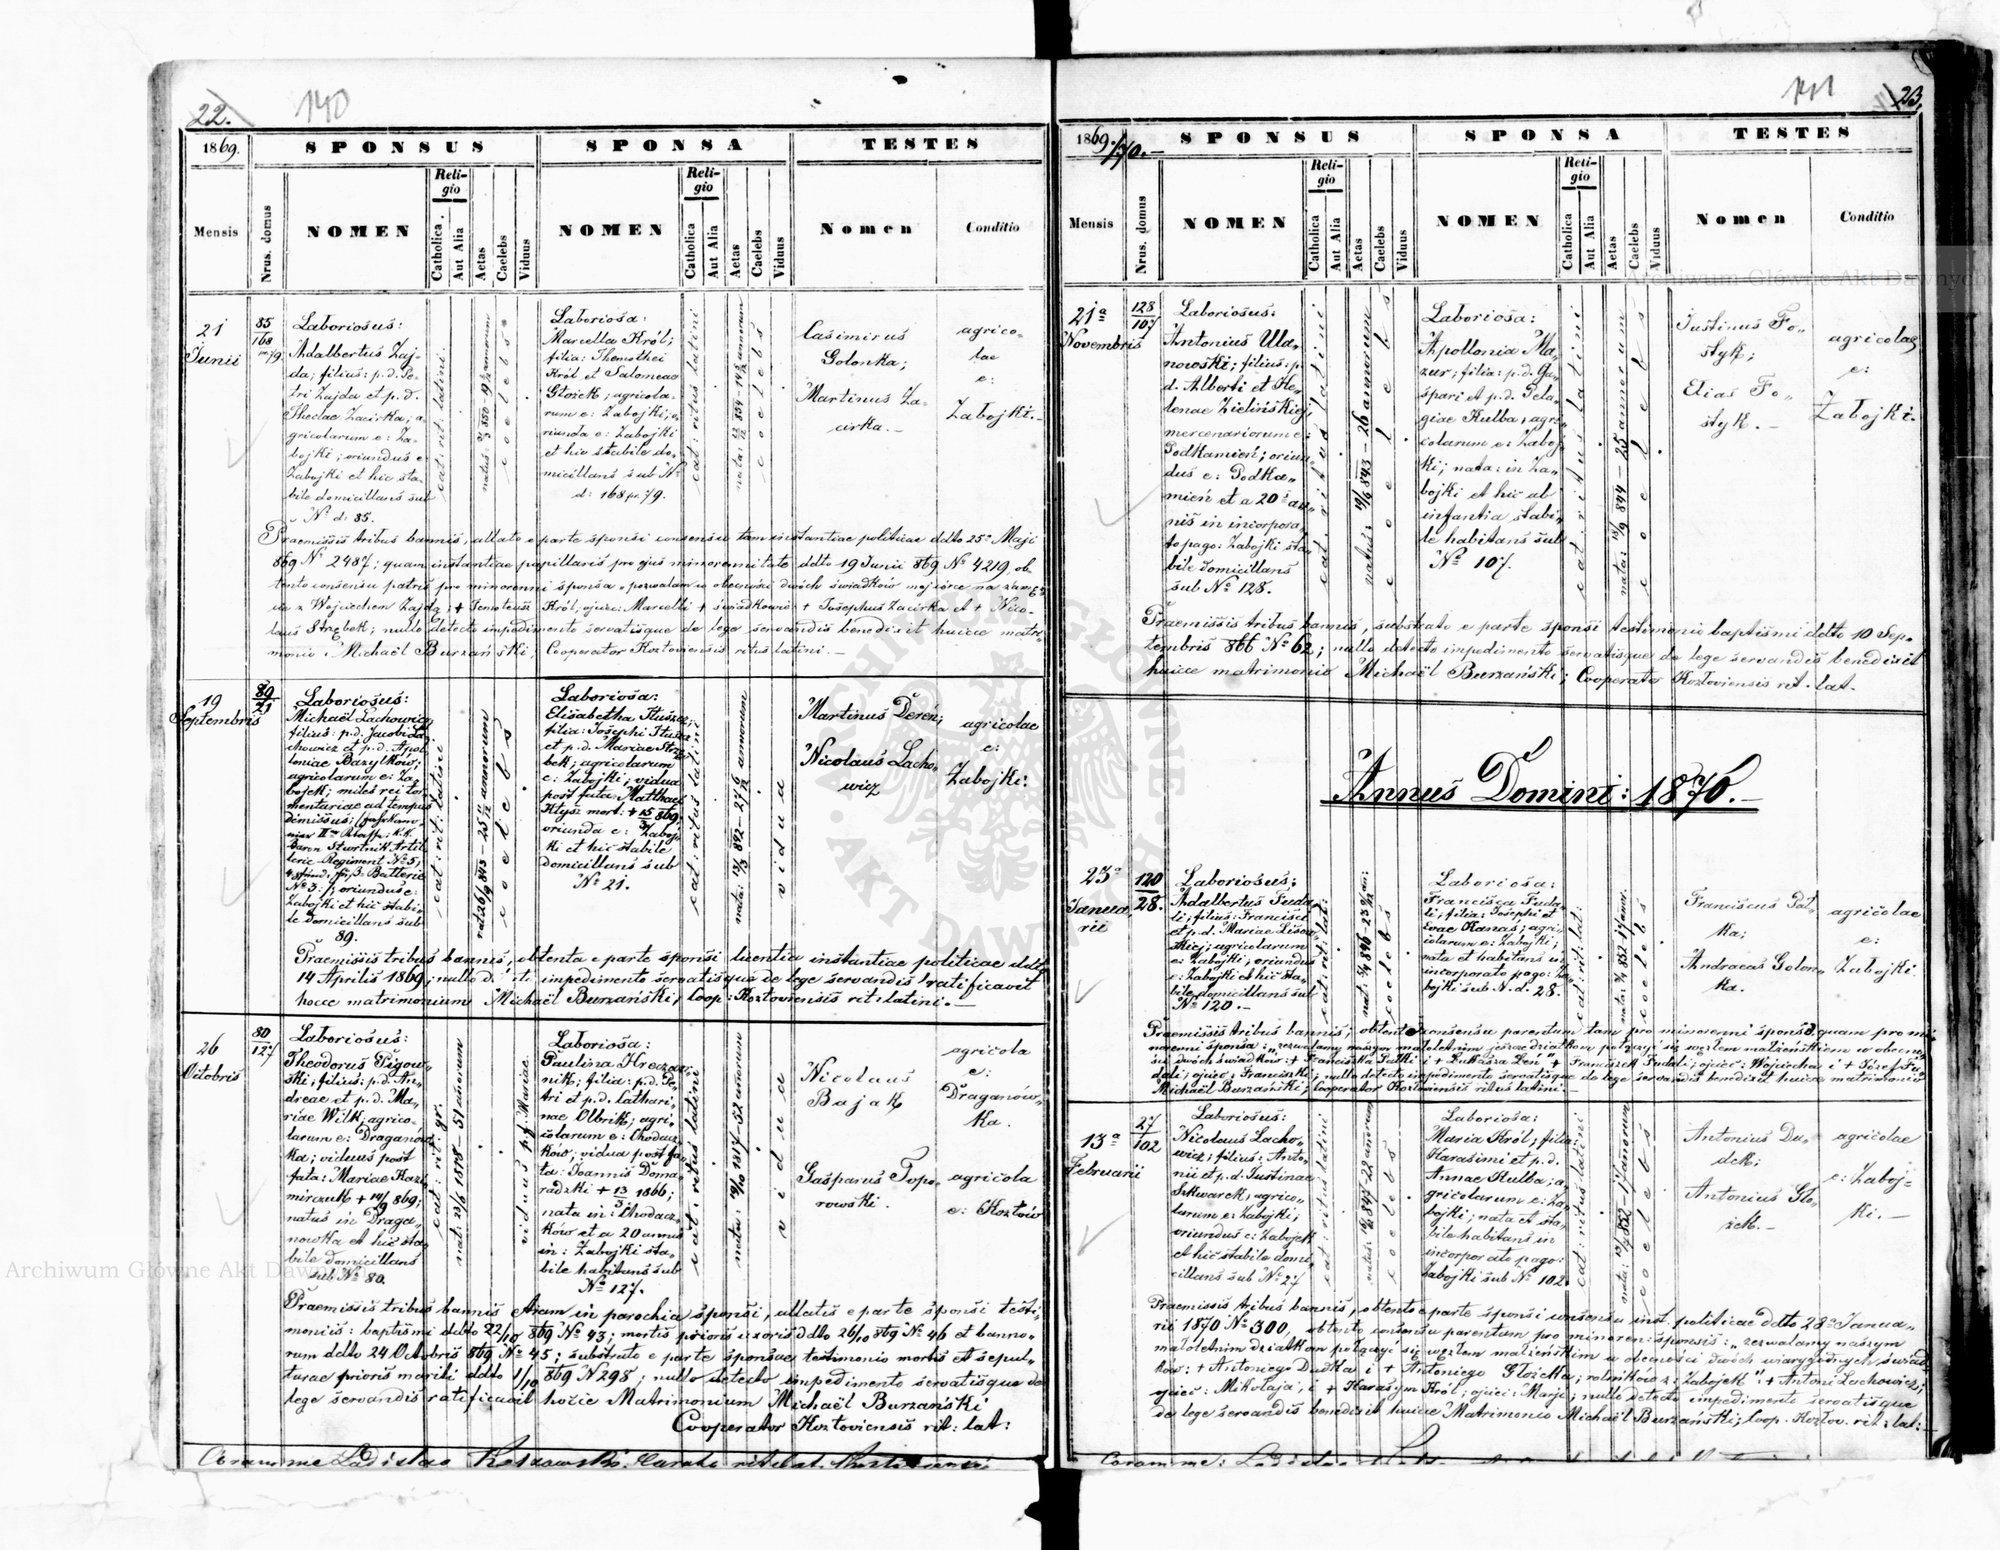 22.
140
1869.
SPONSUS
SPONSA
TESTES
Mensis
Nrus. domus
NOMEN
Religio
Catholica
Aut Alia
Aetas
Caelebs
Viduus
NOMEN
Religio
Catholica
Aut Alia
Aetas
Caelebs
Viduus
Nomen
Conditio
21
Junii
85
168
Laboriosus:
Adalbertus Zaj-
da; filius: p.d. Pe-
tri Zajda et p.d.
Theclae Zacirka; a-
gricolarum e: Za-
bojki; oriundus e
Zabojki et hic sta-
bile domicilians sub
Nº d: 85.
cat: rit: latini
Laboriosa:
Marcella Król;
filia: Themothei
Król et Salomeae
Głozek; agricola-
rum e: Zabojki; o-
riunda e: Zabojki
et hic stabile do-
micilians sub Nº
d: 168
cat: ritus latini
coelebs
Casimirus
Golonka;
Martinus Za-
cirka.-
agrico-
lae
e:
Zabojki.-
Praemissis tribus bannis, allato e parte sponsi consensu tam instantiae politicae ddto 25º Maji
869 Nº 2487; quam instantiae pupillaris pro ejus minorennitate ddto 19 Junii 869 Nº 4219, ob-
tento consensu patris pro minorenni sponsa
Król, ojciec Marcelli + świadkowie + Josephus Zacirka et + Nico-
laus Strzębek; nullo detecto impedimento servatisque de lege servandis benedixit huicce matri-
monio: Michaël Burzański; Cooperator Kozłoviensis ritus latini.-
19
Septembris
89
21
Laboriosus:
Michaël Lachowicz
filius: p.d. Jacobi La-
chowicz et p.d. Apol-
loniae Bazylków;
agricolarum e: Za-
bojek; miles rei tor-
mentariae ad tempus
dimissus;
Nº 3: oriundus e:
Zabojki et hic stabi-
le domicilians sub
89.
cat: rit: latini
coelebs
Laboriosa:
Elisabetha
filia: Josephi
et p.d. Mariae Strzę-
bek; agricolarum
e: Zabojki; vidua
post fata: Matthaei
oriunda e: Zaboj-
ki et hic stabile
domicilians sub
Nº 21.
cat: ritus latini
vidua
Martinus Dereń;
Nicolaus Lacho-
wicz
agricolae
e:
Zabojki:
Praemissis tribus bannis, obtenta e parte sponsi licentia instantiae politicae ddto
14 Aprilis 1869; nullo impedimento servatisque de lege servandis ratificavit
hocce matrimonium Michaël Burzański, Coop: Kozłoviensis rit: latini.-
26
Octobris
80
127
Laboriosus:
Theodorus Pigow-
ski; filius: p.d. An-
dreae et p.d. Ma-
riae Wilk, agrico-
larum e: Draganów-
ka; viduus post
fata: Mariae Kazi-
mirczuk + 869;
natus in Draga-
nowka et hic sta-
bile domicilians
sub Nº 80.
cat: rit: gr.
viduus p.f. Mariae
Laboriosa:
Paulina
nik; filia: p.d. Pe-
tri et p.d. Cathari-
nae Olbrik; agri-
colarum e: Chodacz-
ków; vidua post fa-
ta: Joannis Doma-
radzki + 1866;
nata in: Chodacz-
ków et a 20 annis
in: Zabojki sta-
bile habitans sub
Nº 127.
cat: ritus latini
vidua
Nicolaus
Bajak
Gasparus Topo-
rowski.
agricola
e:
Draganów-
ka.
agricola
e: Kozłów
Praemissis tribus bannis etiam in parochia sponsi, allatis e parte sponsi testi-
moniis: baptismi ddto 22/10 869 Nº 43; mortis prioris uxoris ddto 26/10 869 Nº 46 et banno-
rum ddto 24 Octobris 869 Nº 45; substrato e parte sponsae testimonio mortis et sepul-
turae prioris mariti ddto 1/10 869 Nº 298; nullo detecto impedimento servatisque de
lege servandis ratificavit hocce Matrimonium Michaël Burzański
Cooperator Kozłoviensis rit: lat:
Coram me Ladislao
23.
141
1869/70.-
SPONSUS
SPONSA
TESTES
Mensis
Nrus. domus
NOMEN
Religio
Catholica
Aut Alia
Aetas
Caelebs
Viduus
NOMEN
Religio
Catholica
Aut Alia
Aetas
Caelebs
Viduus
Nomen
Conditio
21ª
Novembris
128
107
Laboriosus:
Antonius Ula-
nowski; filius: p.
d. Alberti et He-
lenae Zielińskiej
mercenariorum e:
Podkamień; oriun-
dus e: Podka-
mień et a 20 an-
nis in incorpora-
to pago: Zabojki sta-
bile domicilians
sub Nº 128.
cat: ritus latini
coelebs
Laboriosa:
Apollonia Ma-
zur; filia: p.d. Ga-
spari et p.d. Pela-
giae Kulba, agri-
colarum e: Zaboj-
ki; nata: in Za-
bojki et hic ab
infantia stabi-
le habitans sub
Nº 107.
cat: ritus latini
coelebs
Justinus Fo-
styk;
Elias Fo-
styk.-
agricolae
e:
Zabojki.-
Praemissis tribus bannis, substrato e parte sponsi testimonio baptismi ddto 10 Sep-
tembris 866 Nº 62; nullo detecto impedimento servatisque de lege servandis benedixit
huicce matrimonio Michaël Burzański; Cooperator Kozłoviensis rit. lat.
Annus Domini: 1870.-
23ª
Janua-
rii
120
28.
Laboriosus;
Adalbertus Fuda-
li; filius: Francisci
et p.d. Mariae Lisow-
skiej; agricolarum
e: Zabojki; oriundus
e: Zabojki et hic sta-
bile domicilians sub
Nº 120.-
cat: rit: lat:
coelebs
Laboriosa:
Francisca Fuda-
li; filia: Josephi et
Evae Kanas; agri-
colarum e: Zabojki;
nata et habitans in
incorporato pago: Za-
bojki sub N. d. 28.
cat: rit: lat:
coelebs
Franciscus Pał-
ka;
Andraeas Golon-
ka.
agricolae
e:
Zabojki.
Praemissis tribus bannis; obtento consensu parentum tam pro minorenni sponso quam pro mi-
norenni sponsa: „zezwalamy naszym małoletnim jeszcze dziatkom połączyć się węzłem małżeństkiem w obecno-
ści dwóch świadków: + Franciszka Pałki i + Łukasza Deń" + Franciszek Fudali; ojciec: Wojciecha i + Józef Fu-
dali; ojciec: Franciszki; nullo detecto impedimento servatisque de lege servandis benedixit huicce matrimonio
Michaël Burzański; Cooperator Kozłoviensis ritus latini.-
13ª
Februarii
27
102
Laboriosus:
Nicolaus Lacho-
wicz; filius: Anto-
nii et p.d. Justinae
Szkwarek, agrico-
larum e: Zabojki;
oriundus e: Zabojek
et hic stabile domi-
cilians sub Nº 27
cat: ritus latini
coelebs
Laboriosa:
Maria Król; filia:
Harasimi et p.d.
Annae Kulba; a-
gricolarum e: Za-
bojki; nata et sta-
bile habitans in
incorporato pago:
Zabojki sub Nº 102
cat: ritus latini
coelebs
Antonius Du-
dek;
Antonius Gło-
zek.-
agricolae
e: Zaboj-
ki.-
Praemissis tribus bannis, obtento e parte sponsi consensu inst. politicae ddto 28ª Janua-
rii 1870 Nº 300, obtento consensu parentum pro minoren: sponsis: „zezwalamy naszym
małoletnim dziatkom połączyć się węzłem małżeńskim w obecności dwóch wiarygodnych świad-
ków: + Antoniego Dudka i + Antoniego Głozka; rolników z: Zabojek" + Antoni Lachowicz;
ojciec: Mikołaja, i + Harasym Król; ojciec: Marji; nullo detecto impedimento servatisque
de lege servandis benedixit huicce Matrimonio Michaël Burzański; Coop. Kozłov. rit: lat:-
Coram me: Ladislao
Archiwum Główne Akt Dawnych